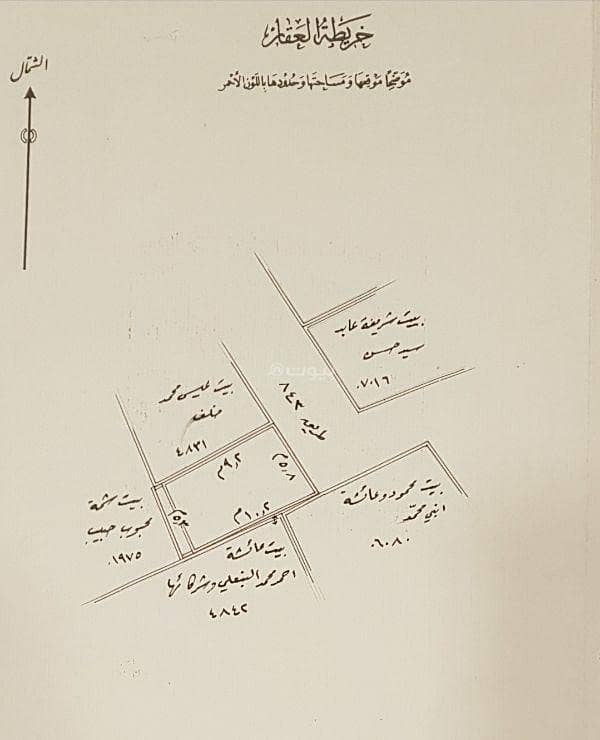 خريطة العقار
مُوَضِّحًا مَوْقِعَهَا وَمَسَاحَتَهَا وَحُدُودَهَا بِاللَّوْنِ الأَحْمَر
الشمال
بيت شريفة عابد
سيد حسن
٠٧٠١٦
طريق ٨٤٣
بيت عيسى محمد
خلف
٤٨٣١
٩٫٢م
٥٫٨م
١٠٫٢م
بيت محمود وعائشة
ابني محمد
٠٦٠٨٠
بيت
محبوب حبيب
٠١٩٧٥
بيت عائشة
احمد محمد البنعلي وشركائها
٤٨٤٢
بيوت